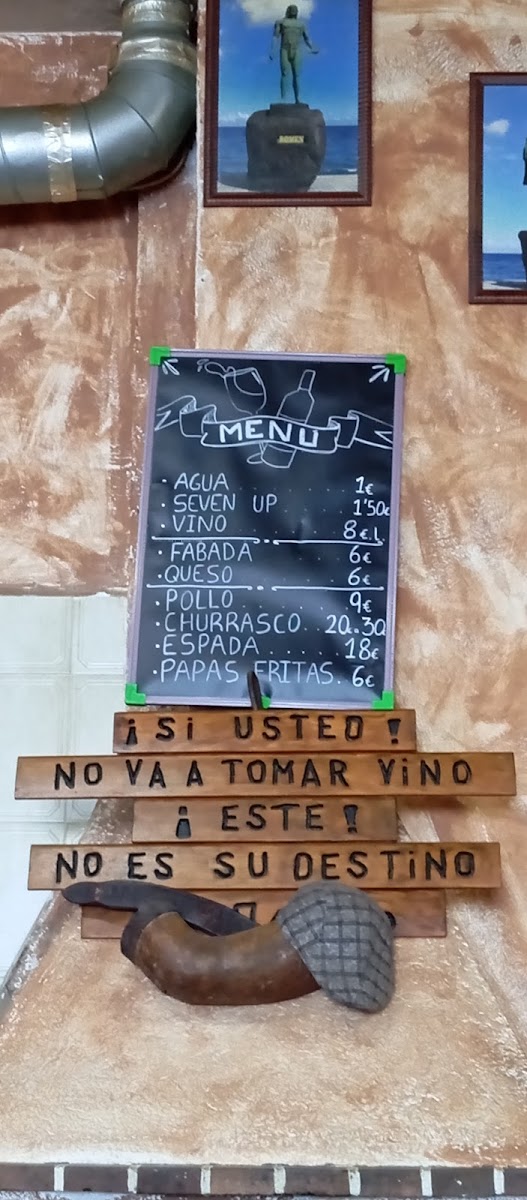 MENU
· AGUA ........ 1€
· SEVEN UP ..... 1'50€
· VINO ........ 8€.L
· FABADA ........ 6€
· QUESO ........ 6€
· POLLO ........ 9€
· CHURRASCO.. 20..30
· ESPADA ...... 18€
· PAPAS FRITAS. 6€
¡SI USTED!
NO VA A TOMAR VINO
¡ESTE!
NO ES SU DESTINO